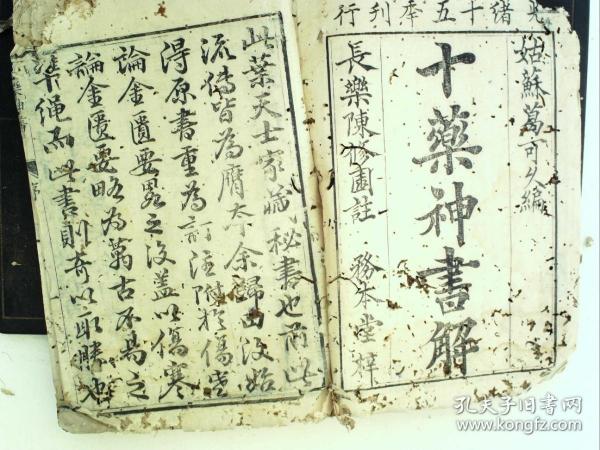 光緒十五季刊行
姑蘇葛可久編
十藥神書解
長樂陳修園註　務本堂梓
此葉天士家藏秘書也前此
流傳皆為贋本余歸田後始
得原書重為訂註附於傷寒
論金匱要畧之後蓋以傷寒
論金匱要略為萬古不易之
準繩而此書則奇以取勝也
序
孔夫子旧书网
www.kongfz.com